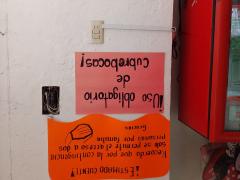 ¡Uso obligatorio
de
cubrebocas!
¡ESTIMADO CLIENTE!
Recuerda que por la contingencia
solo se permite el acceso a dos
personas por familia
Gracias